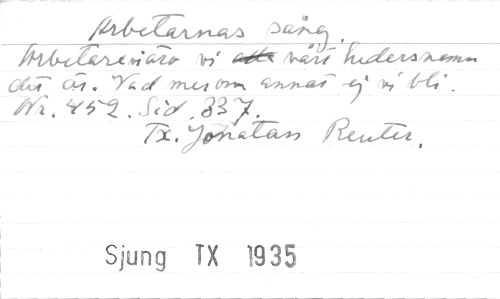 Arbetarnas sång.
Arbetare äro vi alle vårt hedersnamn
det är. Vad mer om annat ej vi bli.
Nr. 452. Sid. 337.
Tx. Jonatan Reuter.
Sjung TX 1935